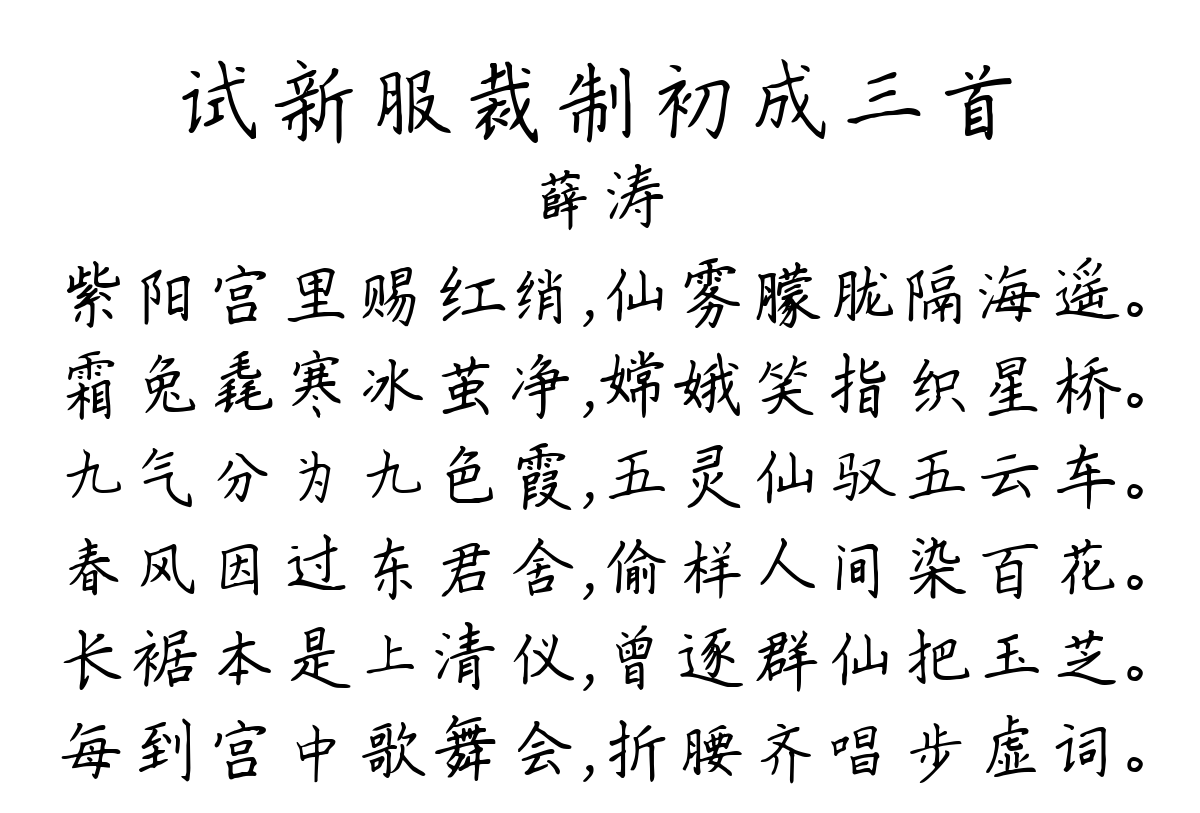 试新服裁制初成三首
薛涛
紫阳宫里赐红绡,仙雾朦胧隔海遥。
霜兔毳寒冰茧净,嫦娥笑指织星桥。
九气分为九色霞,五灵仙驭五云车。
春风因过东君舍,偷样人间染百花。
长裾本是上清仪,曾逐群仙把玉芝。
每到宫中歌舞会,折腰齐唱步虚词。